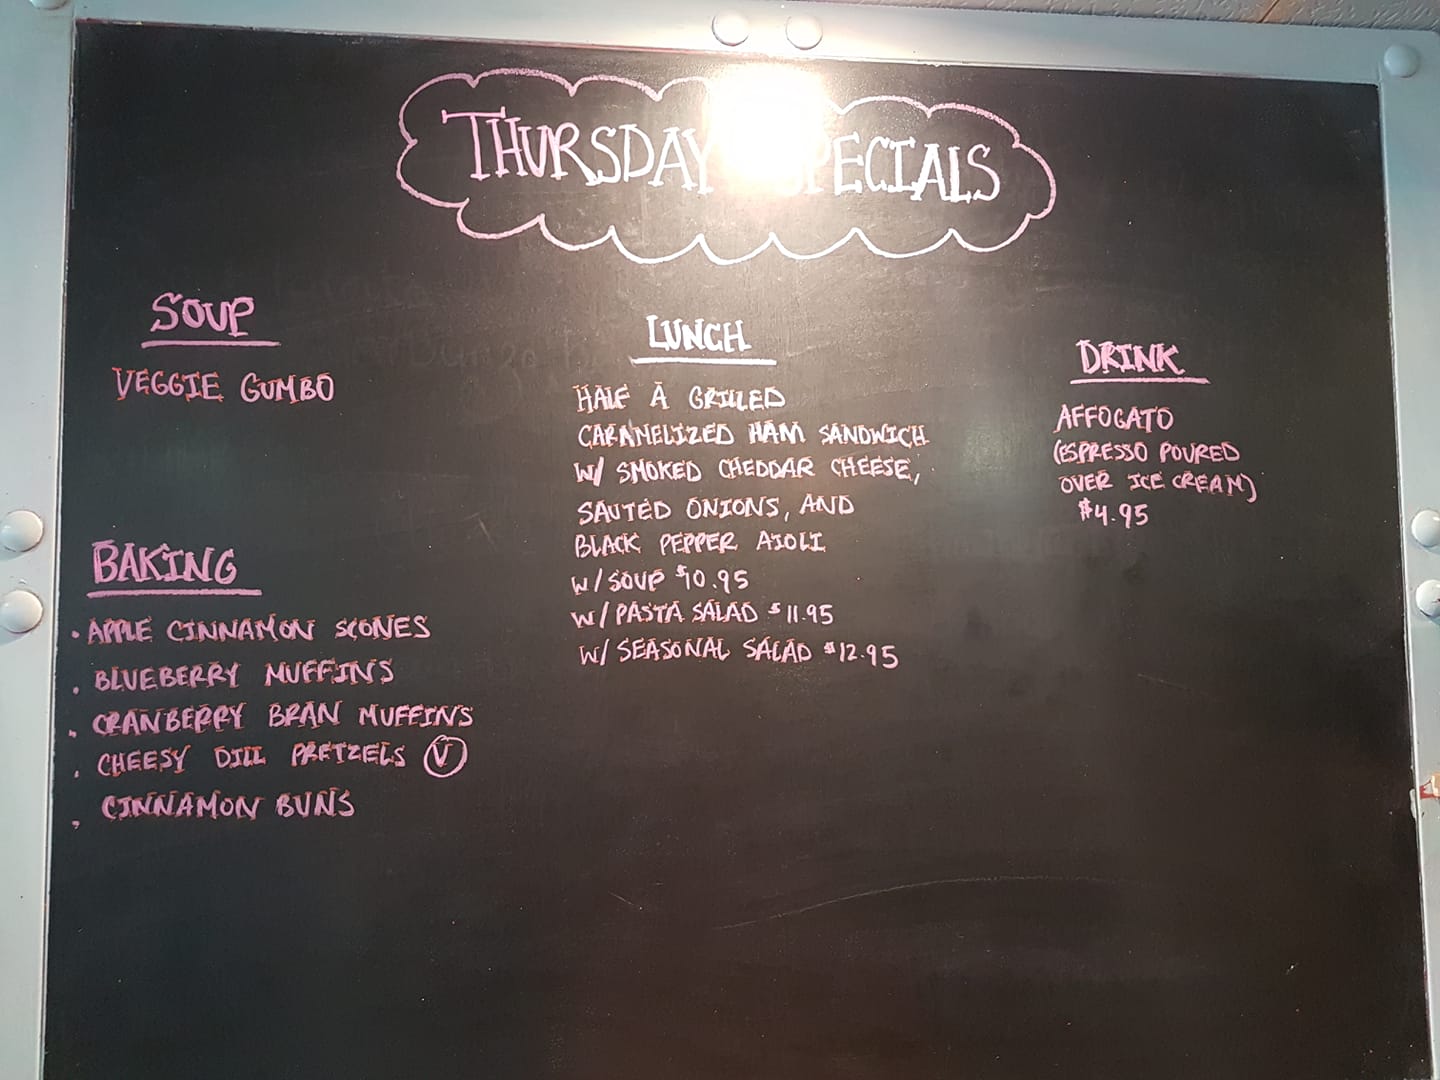 THURSDAY SPECIALS
SOUP
VEGGIE GUMBO
BAKING
• APPLE CINNAMON SCONES
• BLUEBERRY MUFFINS
• CRANBERRY BRAN MUFFINS
• CHEESY DILL PRETZELS V
• CINNAMON BUNS
LUNCH
HALF A GRILLED
CARAMELIZED HAM SANDWICH
W/ SMOKED CHEDDAR CHEESE,
SAUTÉD ONIONS, AND
BLACK PEPPER AIOLI
W/ SOUP $10.95
W/ PASTA SALAD $11.95
W/ SEASONAL SALAD $12.95
DRINK
AFFOGATO
(ESPRESSO POURED
OVER ICE CREAM)
$4.95